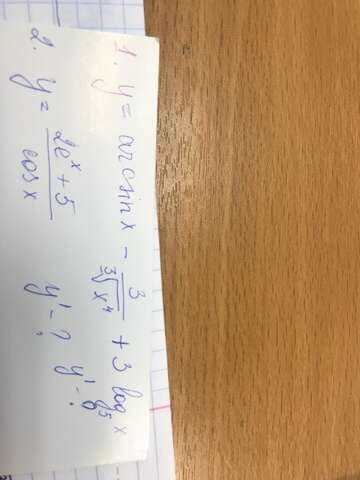 1. y = arcsinx - 3/∛x⁴ + 3 log₅x y'-?
2. y = (2eˣ + 5)/cosx y'-?